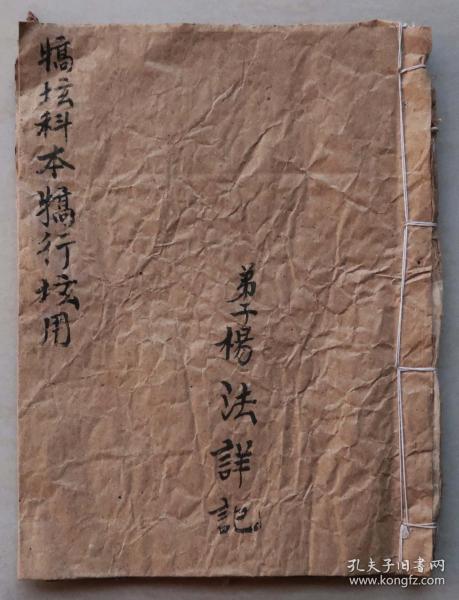 犒坛科本犒行坛用
弟子楊法詳記
孔夫子旧书网
www.kongfz.com